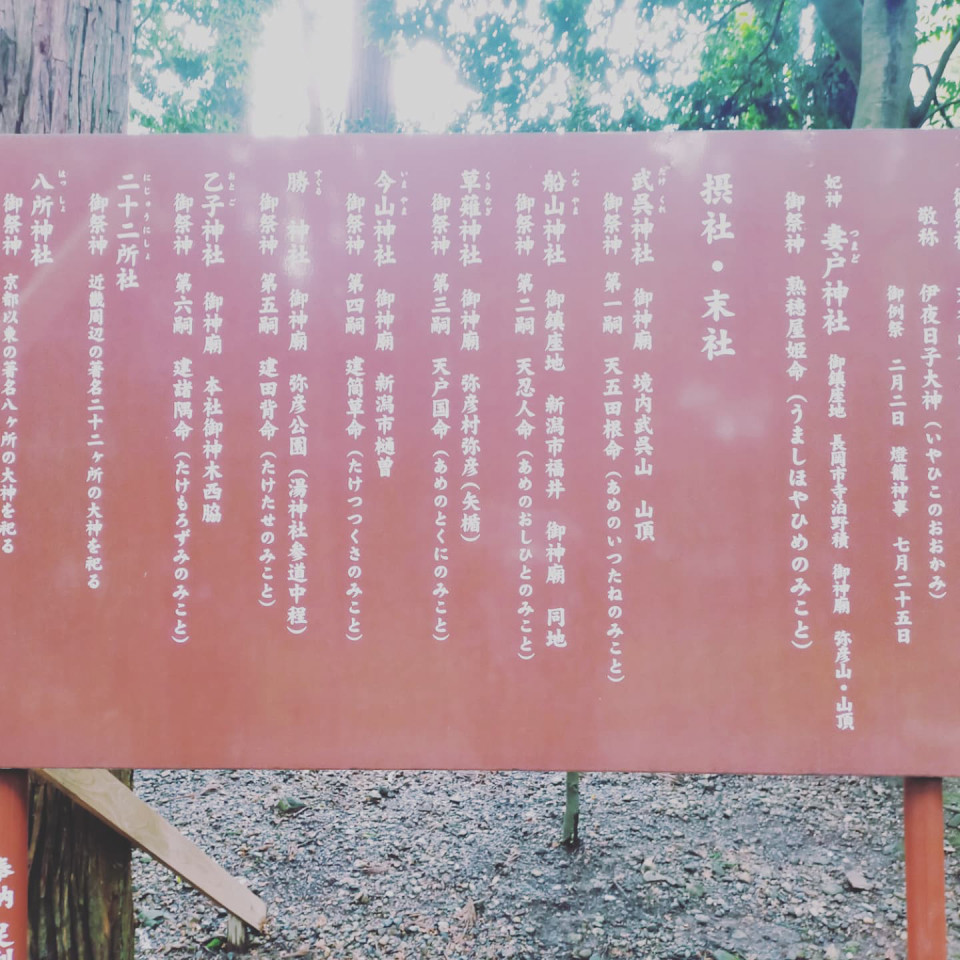 敬称 伊夜日子大神(いやひこのおおかみ)
御例祭 二月二日 燈籠神事 七月二十五日
妃神 妻戸神社 御鎮座地 長岡市寺泊野積 御神廟 弥彦山・山頂
つまど
御祭神 熟穂屋姫命(うましほやひめのみこと)
摂社・末社
武呉神社 御神廟 境内武呉山 山頂
だけ くれ
御祭神 第一嗣 天五田根命(あめのいつたねのみこと)
船山神社 御鎮座地 新潟市福井 御神廟 同地
ふな やま
御祭神 第二嗣 天忍人命(あめのおしひとのみこと)
草薙神社 御神廟 弥彦村弥彦(矢楯)
くさ なぎ
御祭神 第三嗣 天戸国命(あめのとくにのみこと)
今山神社 御神廟 新潟市樋曽
いま やま
御祭神 第四嗣 建筒草命(たけつつくさのみこと)
勝 神社 御神廟 弥彦公園(湯神社参道中程)
すぐる
御祭神 第五嗣 建田背命(たけたせのみこと)
乙子神社 御神廟 本社御神木西脇
おとご
御祭神 第六嗣 建諸隅命(たけもろずみのみこと)
二十二所社
にじゅうにしょ
御祭神 近畿周辺の著名二十二ヶ所の大神を祀る
八所神社
はっしょ
御祭神 京都以東の著名八ヶ所の大神を祀る
奉納